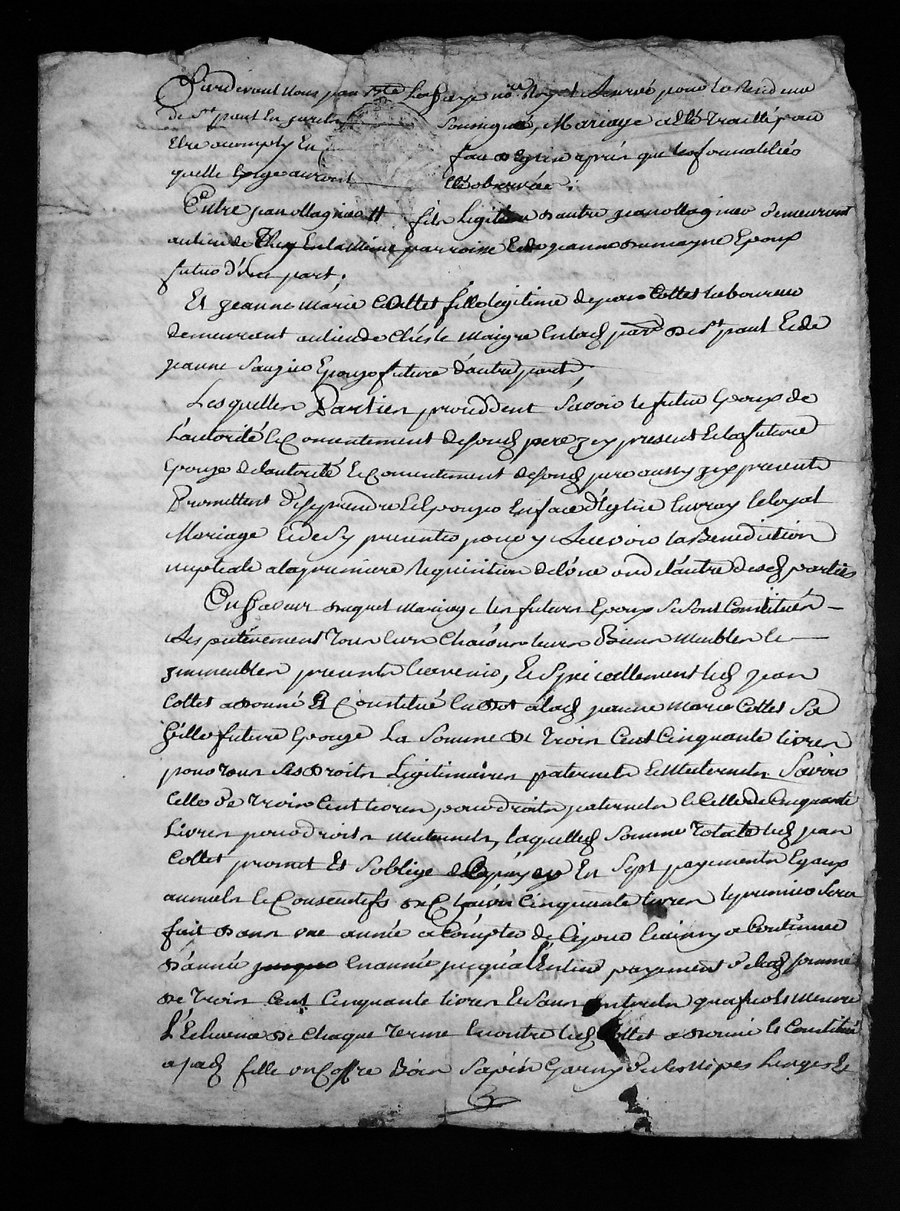 pardevant nous jean Bte notre Royal Reservé pour la Residence
de St paul en jarets soussigné, Mariage a été Traitté pour
Etre accomply En face de Eglise aprés que les formalités
quelle Exige auront Eté observées;
Entre jean Magnieu fils Legitime dautre jean Magnieu demeurant
au lieu de En la même parroisse Et de jeanne dumayne Epoux
futur d'une part;
Et jeanne Marie Collet fille légitime de jean Collet laboureur
demeurant au lieu de Maigre En lad parse de St paul Et de
jeanne Epouze future dautre part
Lesquelles Parties proceddent Savoir le futur Epoux de
L'autorité & Consentement de sond pere jcy present Et la future
Epouze de lautorité & Consentement de sond pere aussy jcy present
Promettent de se prendre & Epouzer En face d'Eglise En vray & loyal
Mariage & de s'y presenter pour y Recevoir la Benediction
nuptiale a la premiere Requisition de l'une ou de lautre desd parties
En faveur duquel Mariage les futurs Epoux se sont Constitués
Respectivement Tous leurs Chacun leurs Biens Meubles &
jmmeubles presents & avenir, & Speciallement led jean
Collet a donné & Constitué En dot a lad jeanne Marie Collet Sa
fille future Epouze La Somme de Trois Cent Cinquante livres
pour Tous ses droits Legitimaires paternels & Maternels Savoir
Celle de Trois Cent livres pour droits paternels & Celle de Cinquante
Livres pour droits Maternels, laquelled Somme Totale led jean
Collet promet Et S'oblige de payer En Sept payements Egaux
annuels & Consecutifs de Chacun Cinquante livres le premier Sera
fait dans une année a Compter de Cejour & ainsy a Continuer
d'année En année jusqu'a L'Entier payement de lad somme
de Trois Cent Cinquante livres & Sans interets qu'a fur & Mesure
L'Echeance de Chaque Terme En outre led Collet a donné & Constitué
a sad fille un Coffre Bois Sapin Garny de ses nipes Linges &